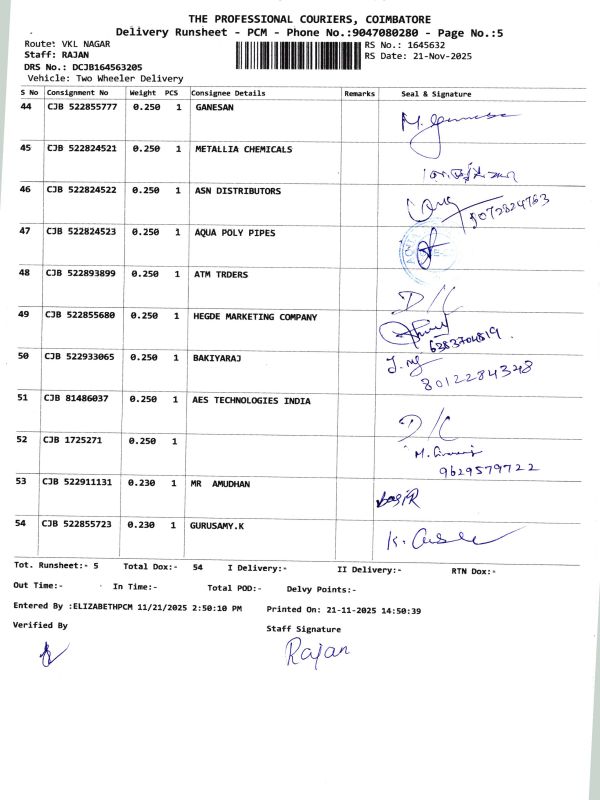 THE PROFESSIONAL COURIERS, COIMBATORE
Delivery Runsheet - PCM - Phone No.:9047080280 - Page No.:5
Route: VKL NAGAR RS No.: 1645632
Staff: RAJAN RS Date: 21-Nov-2025
DRS No.: DCJB164563205
Vehicle: Two Wheeler Delivery
S No Consignment No Weight PCS Consignee Details Remarks Seal & Signature
44 CJB 522855777 0.250 1 GANESAN
45 CJB 522824521 0.250 1 METALLIA CHEMICALS
46 CJB 522824522 0.250 1 ASN DISTRIBUTORS
47 CJB 522824523 0.250 1 AQUA POLY PIPES
48 CJB 522893899 0.250 1 ATM TRDERS D/C
49 CJB 522855680 0.250 1 HEGDE MARKETING COMPANY
50 CJB 522933065 0.250 1 BAKIYARAJ 8012284328
51 CJB 81486037 0.250 1 AES TECHNOLOGIES INDIA D/C
52 CJB 1725271 0.250 1 9629579722
53 CJB 522911131 0.230 1 MR AMUDHAN
54 CJB 522855723 0.230 1 GURUSAMY.K
Tot. Runsheet:- 5 Total Dox:- 54 I Delivery:- II Delivery:- RTN Dox:-
Out Time:- In Time:- Total POD:- Delvy Points:-
Entered By :ELIZABETHPCM 11/21/2025 2:50:10 PM Printed On: 21-11-2025 14:50:39
Verified By Staff Signature
Rajan